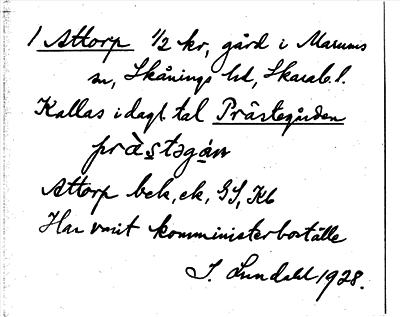 1 Attorp 1/2 kr, gård i Marums
sn, Skånings hd, Skarab. l.
Kallas i dagl. tal Prästegården
pràstəgán
Attorp bek, ek, GS, Kb
Har varit komministerboställe
I. Lundahl 1928.